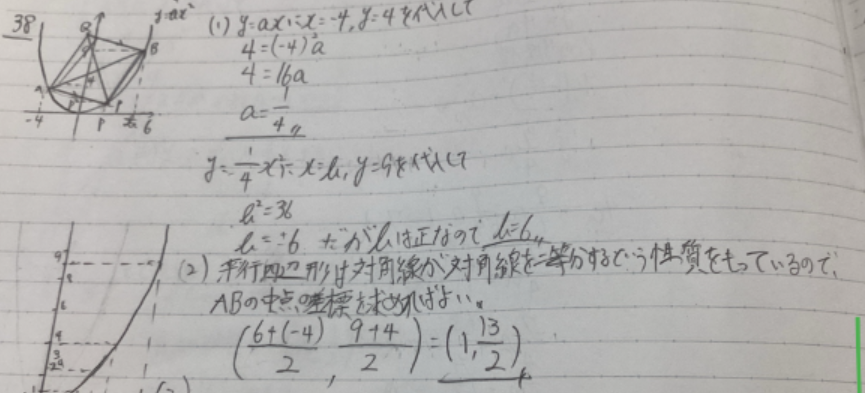 38
y=ax²
Q
B
A
P
-4
P
6
(1) y=ax²に x=-4, y=4を代入して
4=(-4)²a
4=16a
a=1/4
y=1/4x²に x=b, y=9を代入して
b²=36
b=±6 だがbは正なので b=6
(2) 平行四辺形は対角線が対角線を二等分するという性質をもっているので、
ABの中点の座標を求めればよい。
(6+(-4)/2, 9+4/2)=(1, 13/2)
9
4
3